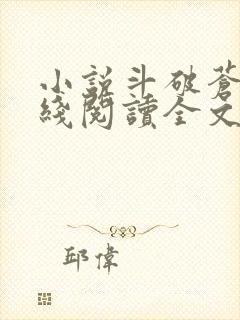 小說斗破蒼
綫閱讀全文
邱偉